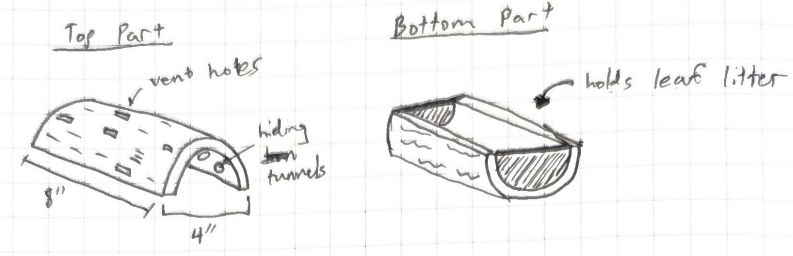 Top Part
vent holes
hiding
tunnels
8"
4"
Bottom Part
holds leaf litter